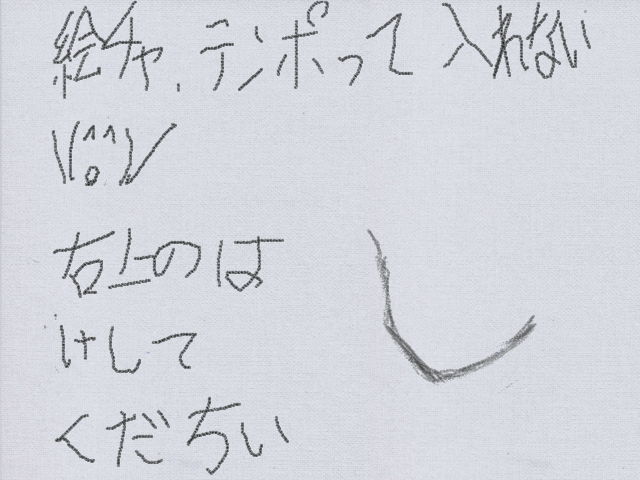 絵チャ、テンポって入れない
\(^o^)/
右上のは
けして
くだちい